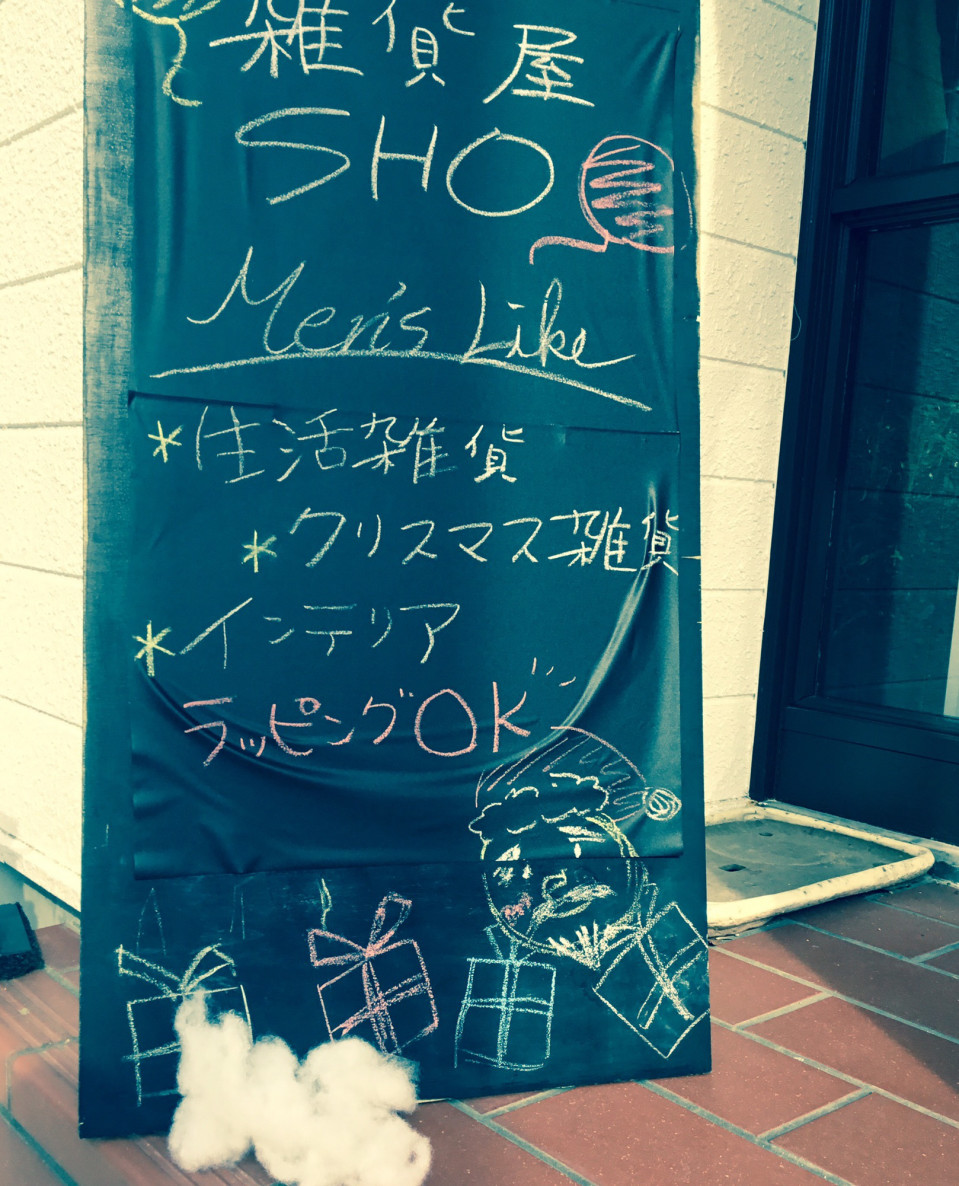 雑貨屋
SHO
Men's Like
*生活雑貨
*クリスマス雑貨
*インテリア
ラッピングOK